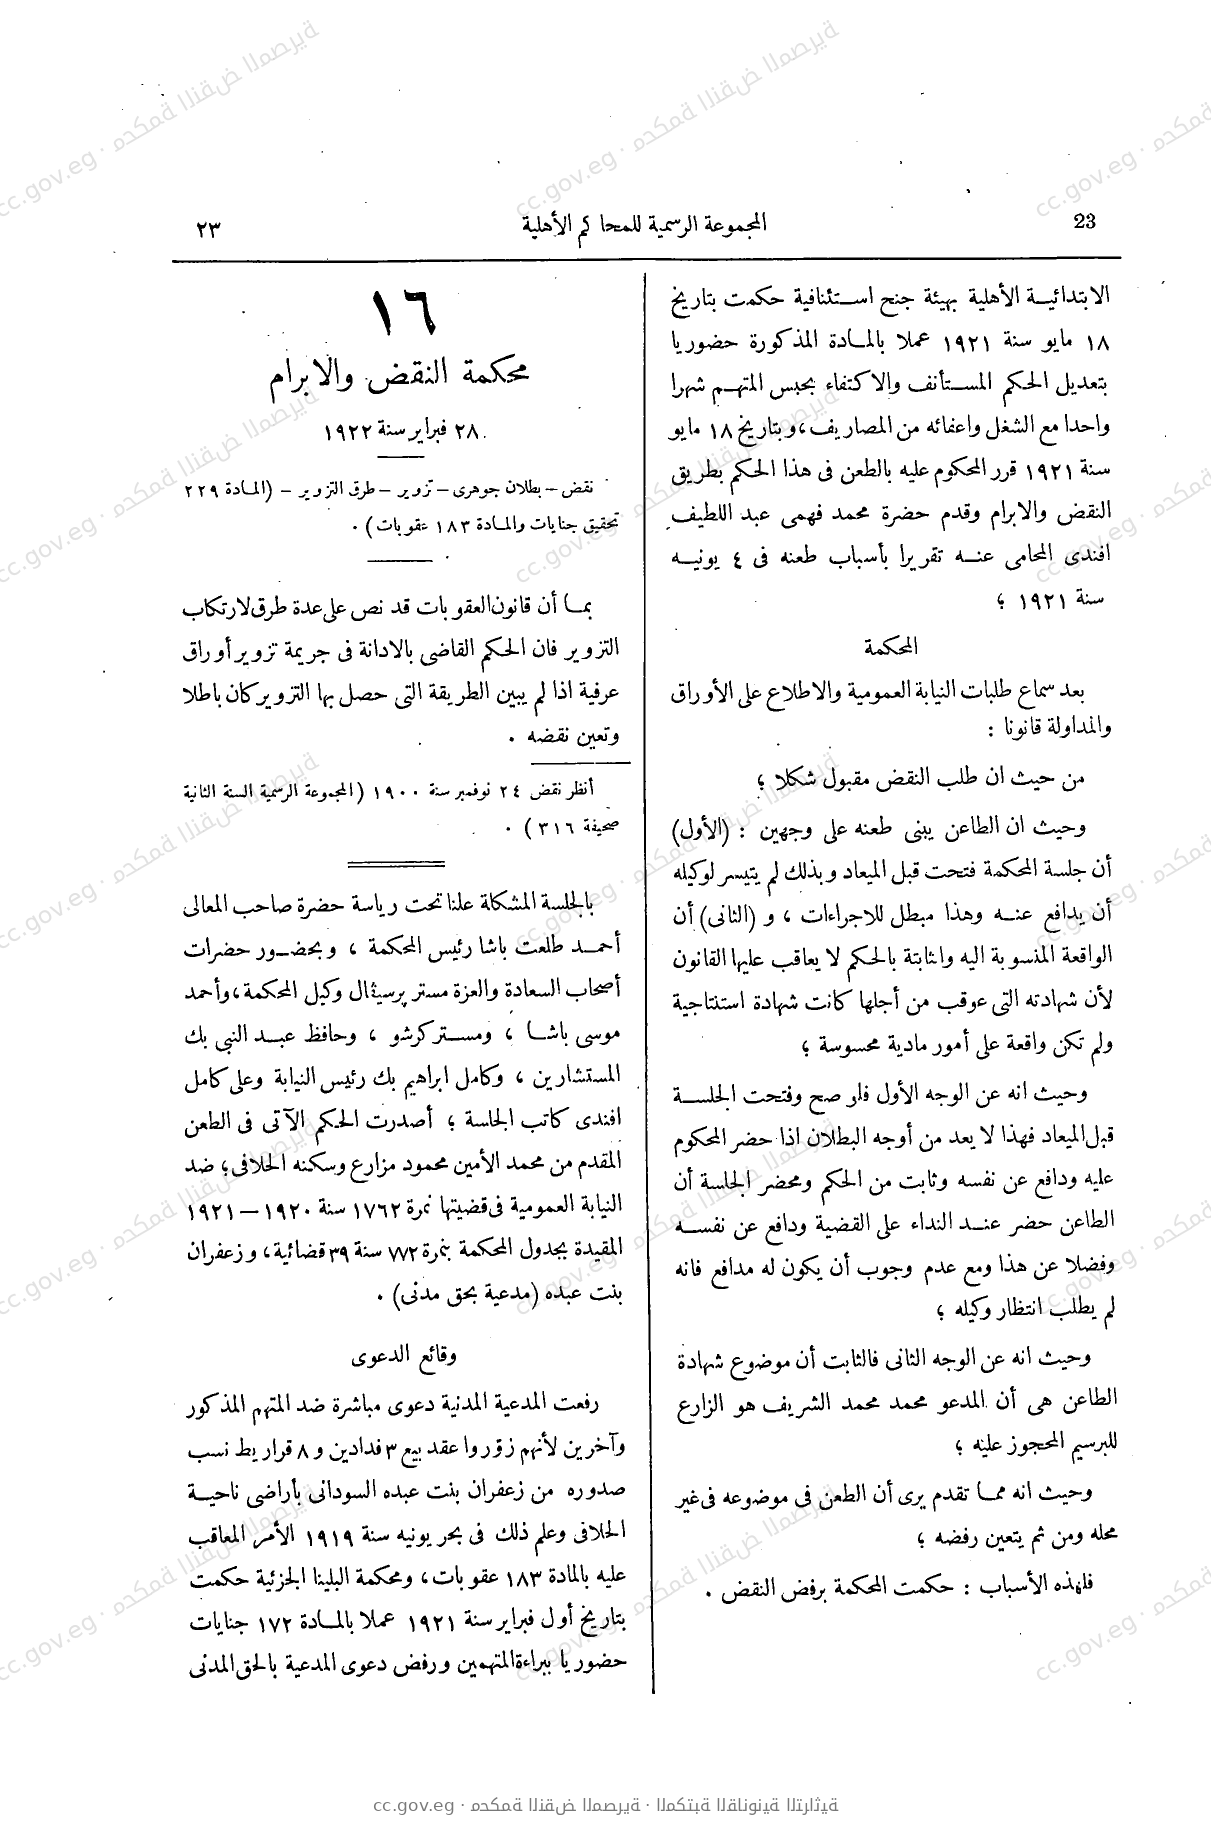 23
المجموعة الرسمية للمحاكم الأهلية
٢٣
الابتدائية الأهلية بهيئة جنح استئنافية حكمت بتاريخ
١٨ مايو سنة ١٩٢١ عملا بالمادة المذكورة حضوريا
بتعديل الحكم المستأنف والاكتفاء بحبس المتهم شهرا
واحدا مع الشغل واعفائه من المصاريف، وبتاريخ ١٨ مايو
سنة ١٩٢١ قرر المحكوم عليه بالطعن فى هذا الحكم بطريق
النقض والابرام وقدم حضرة محمد فهمى عبد اللطيف
افندى المحامى عنه تقريرا بأسباب طعنه فى ٤ يونيه
سنة ١٩٢١ ؛
المحكمة
بعد سماع طلبات النيابة العمومية والاطلاع على الأوراق
والمداولة قانونا :
من حيث ان طلب النقض مقبول شكلا ؛
وحيث ان الطاعن يبنى طعنه على وجهين : (الأول)
أن جلسة المحكمة فتحت قبل الميعاد وبذلك لم يتيسر لوكيله
أن يدافع عنه وهذا مبطل للاجراءات ، و (الثانى) أن
الواقعة المنسوبة اليه والثابتة بالحكم لا يعاقب عليها القانون
لأن شهادته التى عوقب من أجلها كانت شهادة استنتاجية
ولم تكن واقعة على أمور مادية محسوسة ؛
وحيث انه عن الوجه الأول فلو صح وفتحت الجلسة
قبل الميعاد فهذا لا يعد من أوجه البطلان اذا حضر المحكوم
عليه ودافع عن نفسه وثابت من الحكم ومحضر الجلسة أن
الطاعن حضر عند النداء على القضية ودافع عن نفسه
وفضلا عن هذا ومع عدم وجوب أن يكون له مدافع فانه
لم يطلب انتظار وكيله ؛
وحيث انه عن الوجه الثانى فالثابت أن موضوع شهادة
الطاعن هى أن المدعو محمد محمد الشريف هو الزارع
للبرسيم المحجوز عليه ؛
وحيث انه مما تقدم يرى أن الطعن فى موضوعه فى غير
محله ومن ثم يتعين رفضه ؛
فلهذه الأسباب : حكمت المحكمة برفض النقض .
١٦
محكمة النقض والابرام
٢٨ فبراير سنة ١٩٢٢
نقض – بطلان جوهرى – تزوير – طرق التزوير – (المادة ٢٢٩
تحقيق جنايات والمادة ١٨٣ عقوبات) .
بما أن قانون العقوبات قد نص على عدة طرق لارتكاب
التزوير فان الحكم القاضى بالادانة فى جريمة تزوير أوراق
عرفية اذا لم يبين الطريقة التى حصل بها التزوير كان باطلا
وتعين نقضه .
أنظر نقض ٢٤ نوفمبر سنة ١٩٠٠ (المجموعة الرسمية السنة الثانية
صحيفة ٣١٦ ) .
بالجلسة المشكلة علنا تحت رياسة حضرة صاحب المعالى
أحمد طلعت باشا رئيس المحكمة ، وبحضور حضرات
أصحاب السعادة والعزة مستر پرسيڤال وكيل المحكمة، وأحمد
موسى باشا ، ومستر كرشو ، وحافظ عبد النبى بك
المستشارين ، وكامل ابراهيم بك رئيس النيابة وعلى كامل
افندى كاتب الجلسة ؛ أصدرت الحكم الآتى فى الطعن
المقدم من محمد الأمين محمود مزارع وسكنه الحلافى؛ ضد
النيابة العمومية فى قضيتها نمرة ١٧٦٢ سنة ١٩٢٠ – ١٩٢١
المقيدة بجدول المحكمة بنمرة ٧٧٢ سنة ٣٩ قضائية، وزعفران
بنت عبده (مدعية بحق مدنى) .
وقائع الدعوى
رفعت المدعية المدنية دعوى مباشرة ضد المتهم المذكور
وآخرين لأنهم زوّروا عقد بيع ٣ فدادين و ٨ قراريط نسب
صدوره من زعفران بنت عبده السودانى بأراضى ناحية
الحلافى وعلم ذلك فى بحر يونيه سنة ١٩١٩ الأمر المعاقب
عليه بالمادة ١٨٣ عقوبات، ومحكمة البلينا الجزئية حكمت
بتاريخ أول فبراير سنة ١٩٢١ عملا بالمادة ١٧٢ جنايات
حضوريا ببراءة المتهمين ورفض دعوى المدعية بالحق المدنى
cc.gov.eg · محكمة النقض المصرية · المكتبة القانونية التراثية